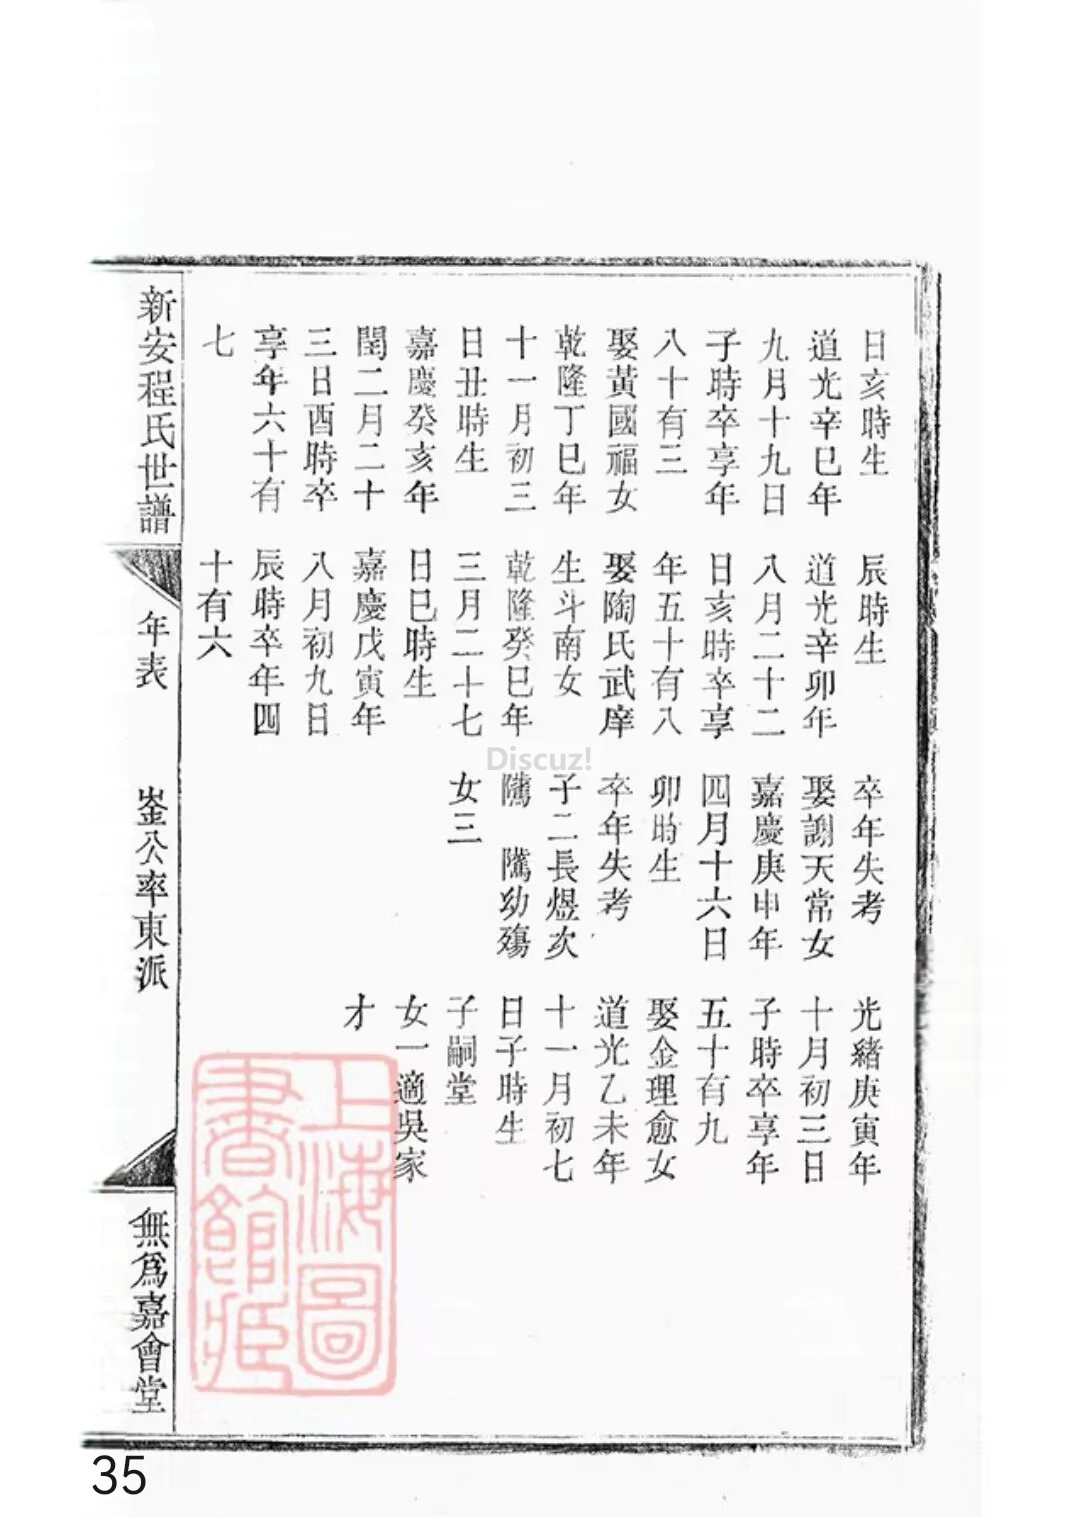 日亥時生
道光辛巳年
九月十九日
子時卒享年
八十有三
娶黃國福女
乾隆丁巳年
十一月初三
日丑時生
嘉慶癸亥年
閏二月二十
三日酉時卒
享年六十有
七
辰時生
道光辛卯年
八月二十二
日亥時卒享
年五十有八
娶陶氏武庠
生斗南女
乾隆癸巳年
三月二十七
日巳時生
嘉慶戊寅年
八月初九日
辰時卒年四
十有六
卒年失考
娶謝天常女
嘉慶庚申年
四月十六日
卯時生
卒年失考
子二長煜次
隲 隲幼殤
女三
光緒庚寅年
十月初三日
子時卒享年
五十有九
娶金理愈女
道光乙未年
十一月初七
日子時生
子嗣堂
女一適吳家
才
新安程氏世譜
年表
崟公率東派
無為嘉會堂
上海圖
書館藏
Discuz!
35